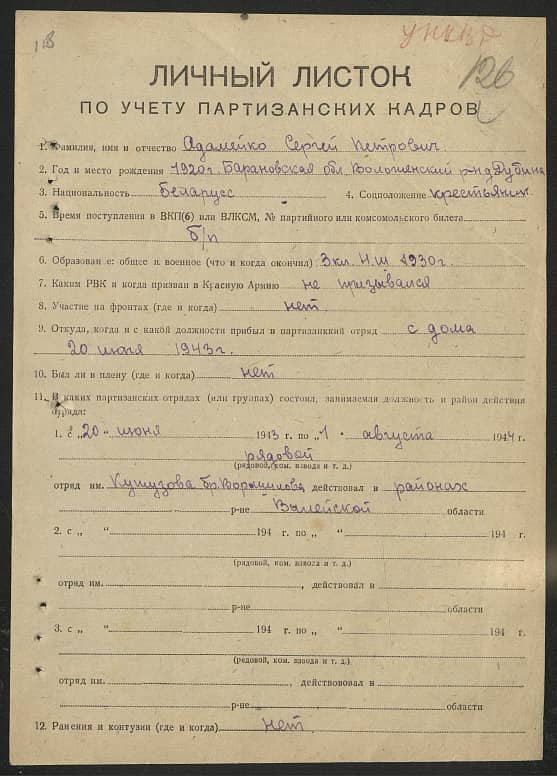 118
УНКВД
126
ЛИЧНЫЙ ЛИСТОК
ПО УЧЕТУ ПАРТИЗАНСКИХ КАДРОВ
1. Фамилия, имя и отчество Адамейко Сергей Петрович
2. Год и место рождения 1920г. Барановская обл Воложинский р-н д Дубина
3. Национальность беларусс 4. Соцположение крестьянин
5. Время поступления в ВКП(б) или ВЛКСМ, № партийного или комсомольского билета
б/п
6. Образование: общее и военное (что и когда окончил) 3 кл. Н.Ш 1930г.
7. Каким РВК и когда призван в Красную Армию не призывался
8. Участие на фронтах (где и когда) нет.
9. Откуда, когда и с какой должности прибыл в партизанский отряд с дома
20 июня 1943г.
10. Был ли в плену (где и когда) нет
11. В каких партизанских отрядах (или группах) состоял, занимаемая должность и район действия
отряда:
1. с „20" июня 1943 г. по „1" августа 1944 г.
рядовой
(рядовой, ком. взвода и т. д.)
отряд им. Кутузова бр. Ворошилова действовал в районах
р-не Вилейской области
2. с „ " 194 г. по „ " 194 г.
(рядовой, ком. взвода и т. д.)
отряд им. , действовал в
р-не области
3. с „ " 194 г. по „ " 194 г.
(рядовой, ком. взвода и т. д.)
отряд им. , действововал в
р-не области
12. Ранения и контузии (где и когда) нет